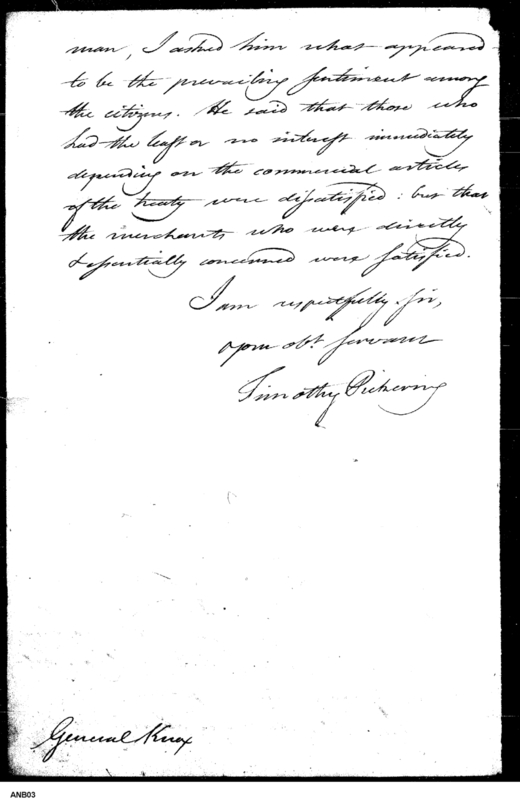 man, I asked him what appeared
to be the prevailing sentiment among
the citizens. He said that those who
had the least or no interest immediately
depending on the commercial articles
of the treaty were dissatisfied: but that
the merchants who were directly
& essentially concerned were satisfied.
I am respectfully, sir,
your obt. servant
Timothy Pickering
General Knox
ANB03